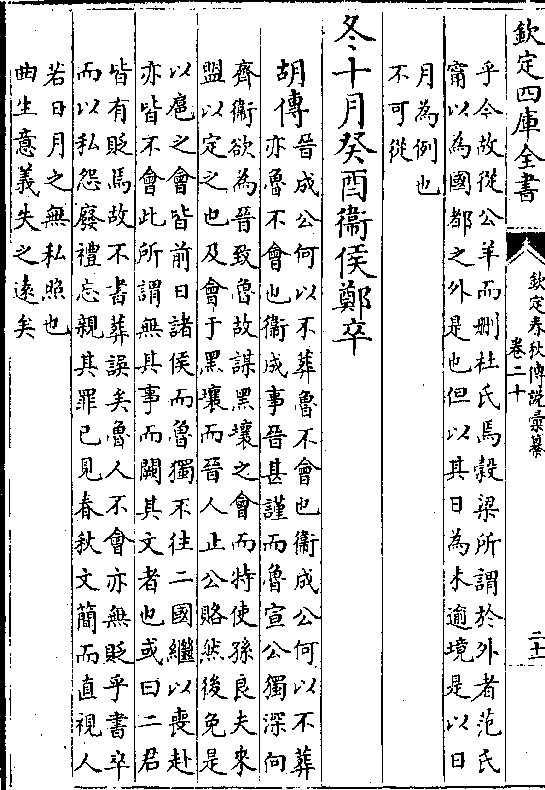 欽定四庫全書
欽定春秋傳說彙纂
卷二十
二十一
乎今故從公羊而刪杜氏焉穀梁所謂於外者范氏
甯以為國都之外是也但以其日為未逾境是以日
月為例也
不可從
冬十月癸酉衛侯鄭卒
胡傳
晉成公何以不葬魯不會也衛成公何以不葬
亦魯不會也衛成事晉甚謹而魯宣公獨深向
齊衛欲為晉致魯故謀黑壤之會而特使孫良夫來
盟以定之也及會于黑壤而晉人止公賂然後免是
以扈之會皆前日諸侯而魯獨不往二國繼以喪赴
亦皆不會此所謂無其事而闕其文者也或曰二君
皆有貶焉故不書葬誤矣魯人不會亦無貶乎書卒
而以私怨廢禮忘親其罪已見春秋文簡而直視人
若日月之無私照也
曲生意義失之遠矣